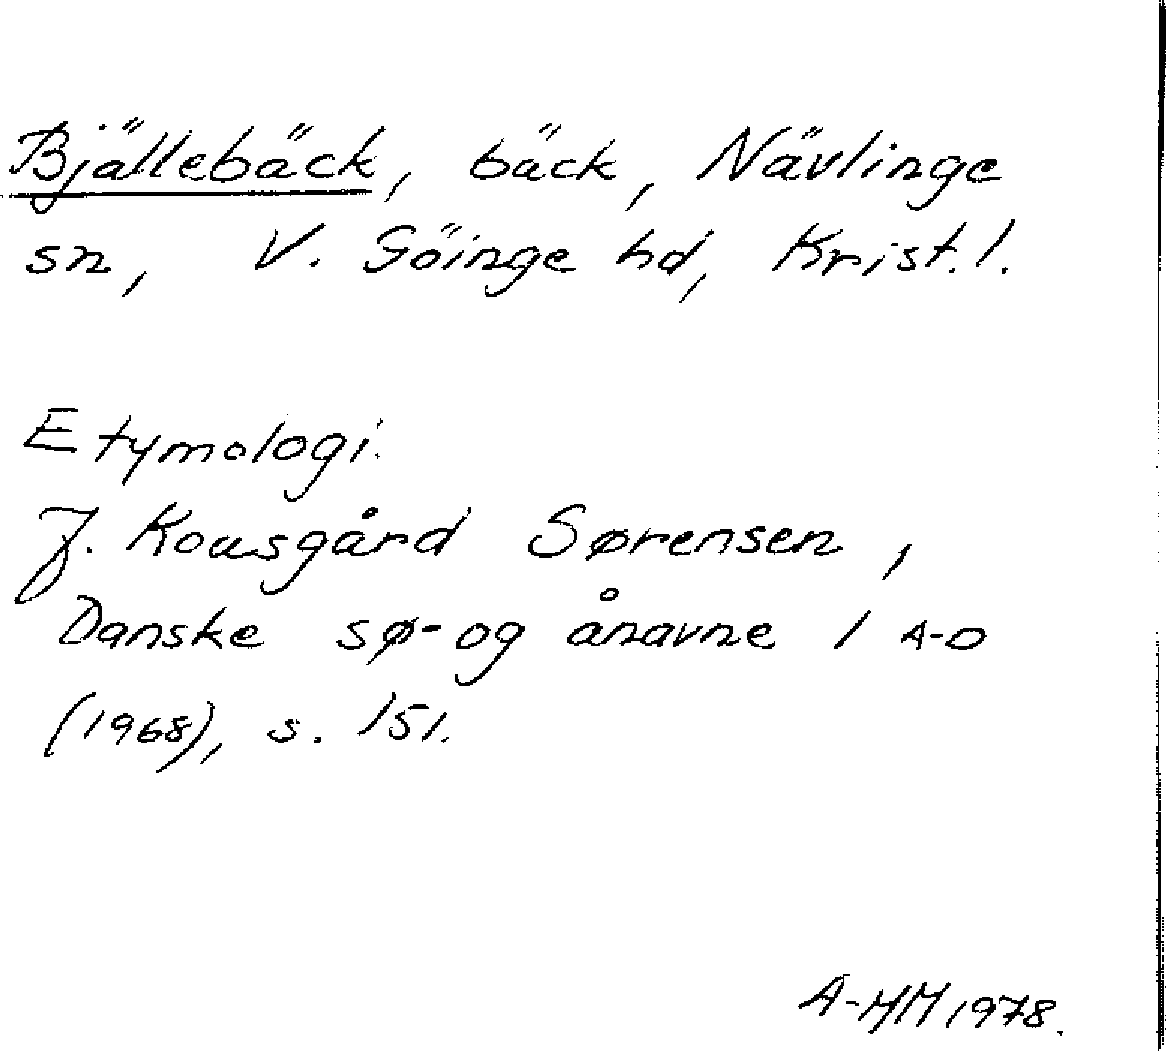 Bjällebäck, bäck, Nävlinge
sn, V. Göinge hd, Krist. l.
Etymologi.
J. Kousgård Sørensen,
Danske sø- og ånavne 1 A-D
(1968), s. 151.
A-HM 1978.